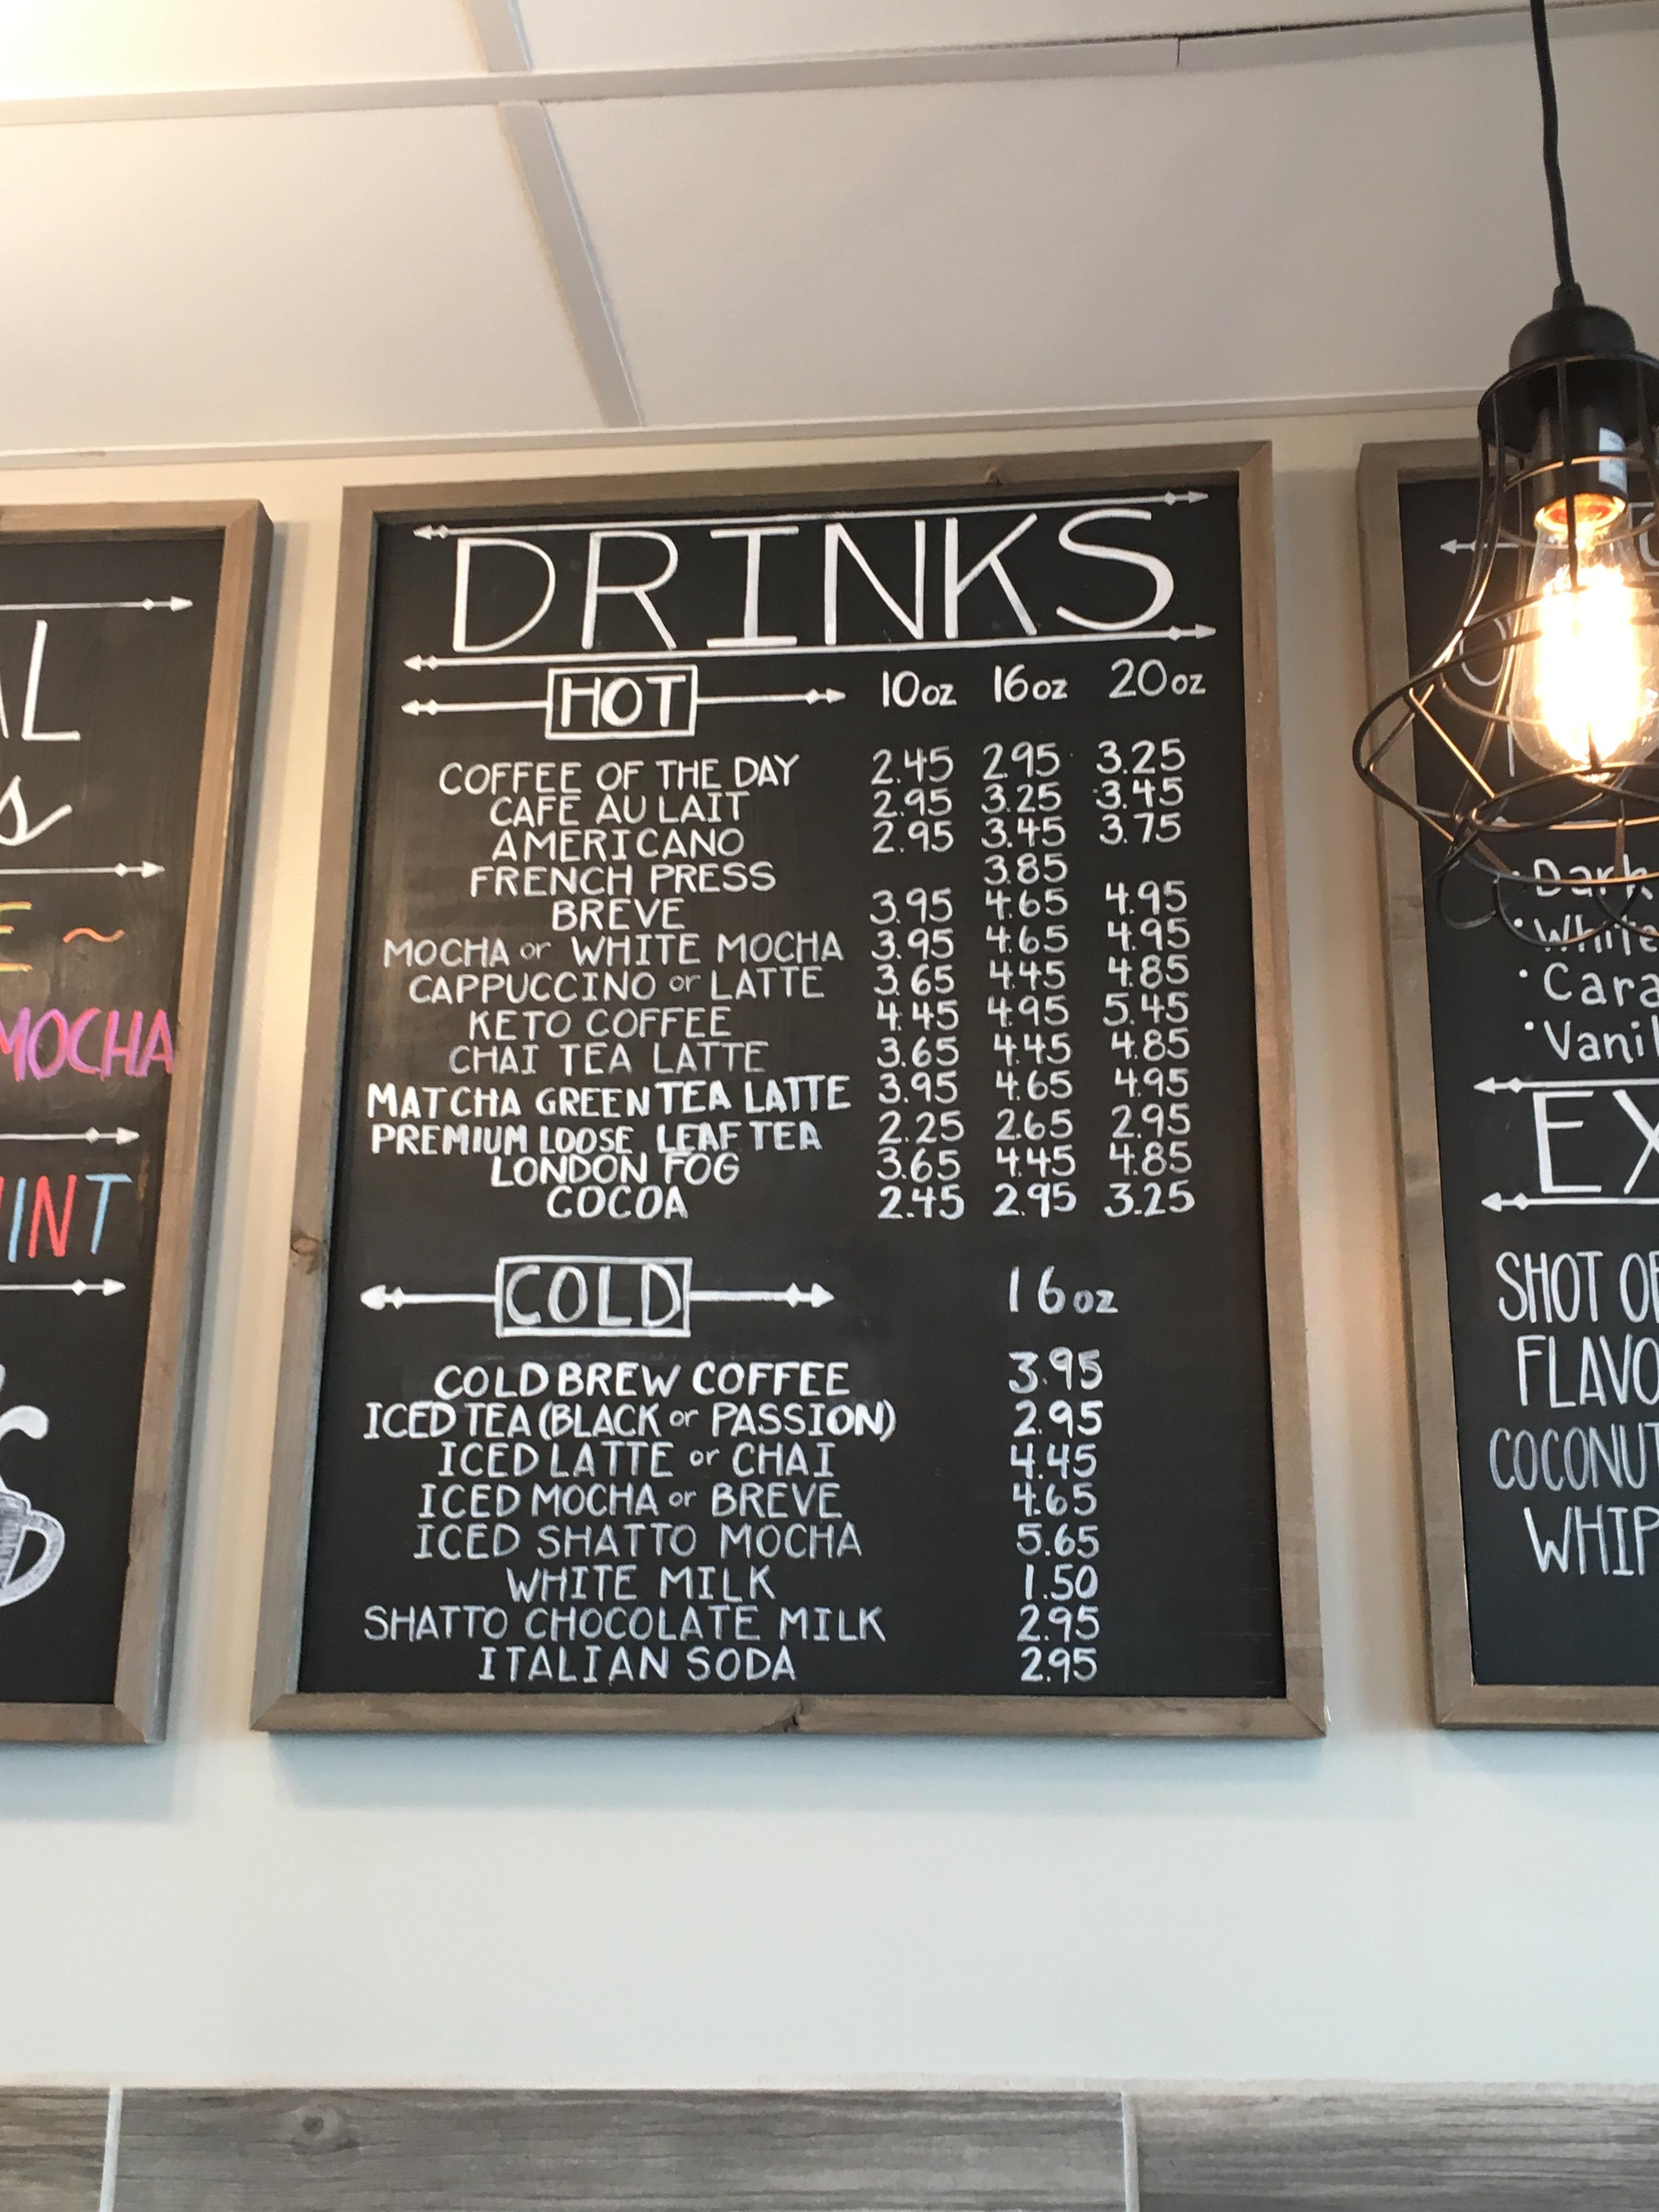 AL
E ~
MOCHA
MINT
DRINKS
HOT 10oz 16oz 20oz
COFFEE OF THE DAY 2.45 2.95 3.25
CAFE AU LAIT 2.95 3.25 3.45
AMERICANO 2.95 3.45 3.75
FRENCH PRESS 3.85
BREVE 3.95 4.65 4.95
MOCHA or WHITE MOCHA 3.95 4.65 4.95
CAPPUCCINO or LATTE 3.65 4.45 4.85
KETO COFFEE 4.45 4.95 5.45
CHAI TEA LATTE 3.65 4.45 4.85
MATCHA GREEN TEA LATTE 3.95 4.65 4.95
PREMIUM LOOSE LEAF TEA 2.25 2.65 2.95
LONDON FOG 3.65 4.45 4.85
COCOA 2.45 2.95 3.25
COLD 16oz
COLD BREW COFFEE 3.95
ICED TEA (BLACK or PASSION) 2.95
ICED LATTE or CHAI 4.45
ICED MOCHA or BREVE 4.65
ICED SHATTO MOCHA 5.65
WHITE MILK 1.50
SHATTO CHOCOLATE MILK 2.95
ITALIAN SODA 2.95
· Dark
· White
· Cara
· Vanil
EX
SHOT OF
FLAVO
COCONUT
WHIP